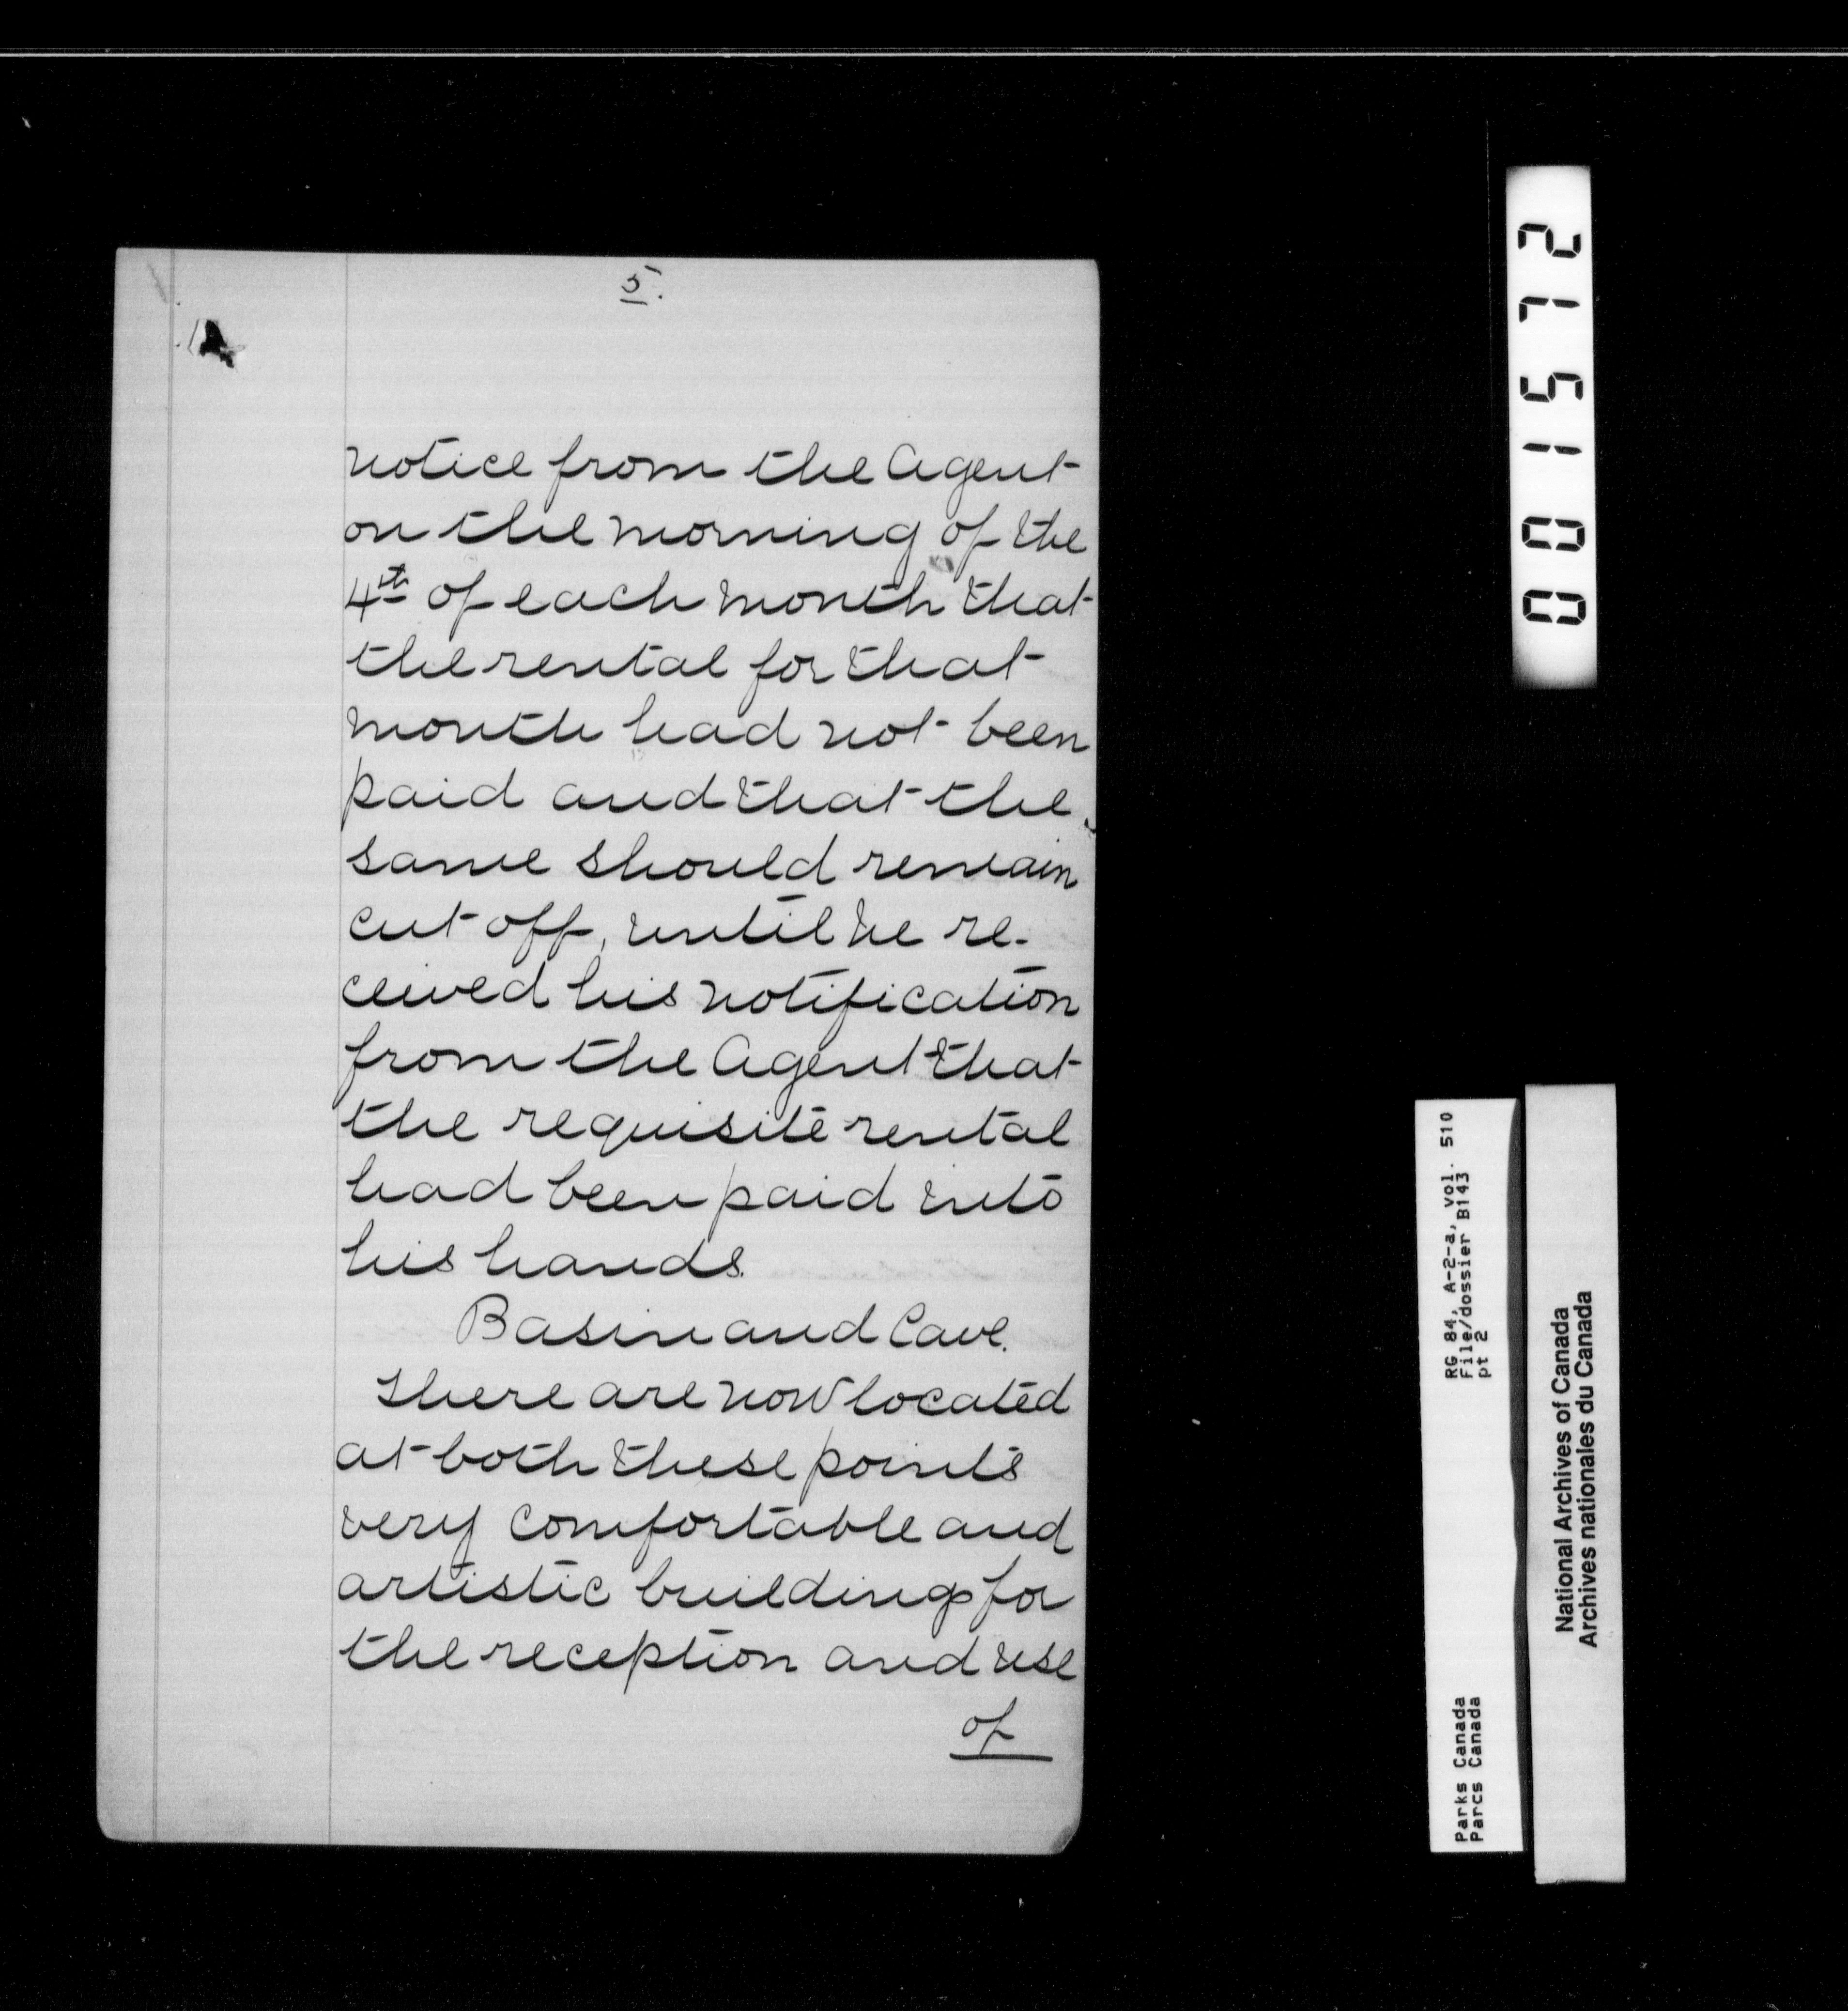 5.
notice from the Agent
on the morning of the
4th of each month that
the rental for that
month had not been
paid and that the
same should remain
cut off, until he re-
ceived his notification
from the Agent that
the requisite rental
had been paid into
his hands.
Basin and Cave.
There are now located
at both these points
very comfortable and
artistic buildings for
the reception and use
of
001572
RG 84, A-2-a, vol. 510
File/dossier B143
pt 2
Parks Canada
Parcs Canada
National Archives of Canada
Archives nationales du Canada